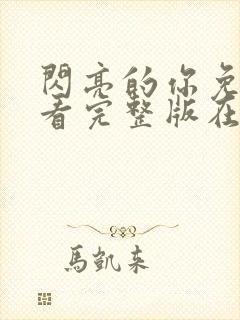 閃亮的你免
看完整版在
馬凱來